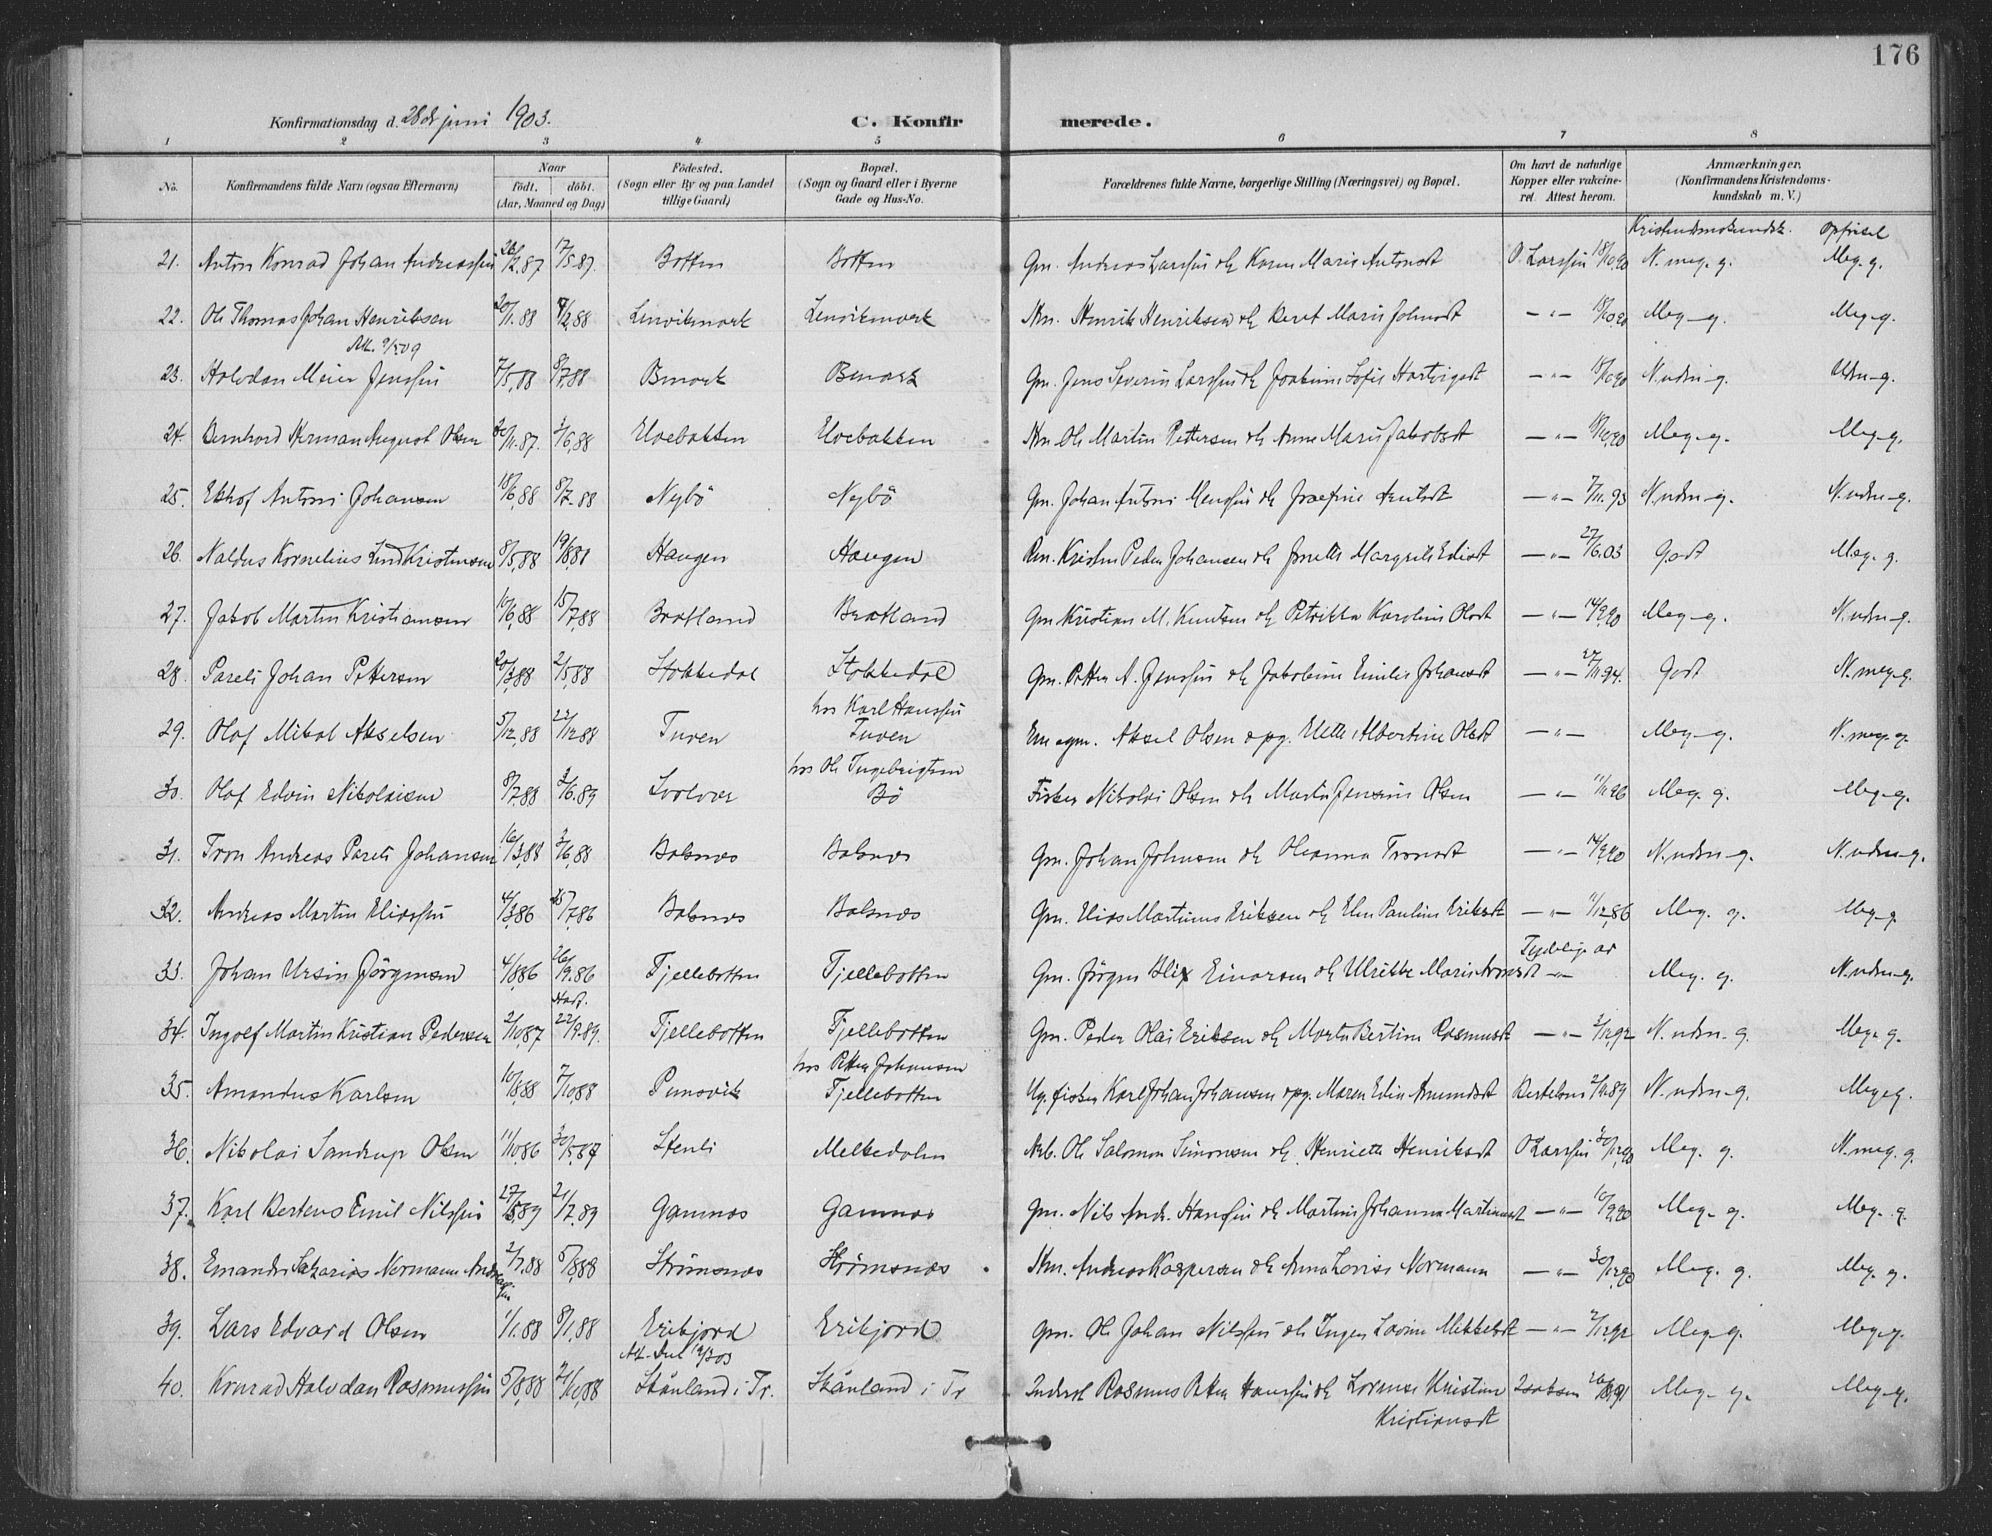 176
Konfirmationsdag d. 28de juni 1903. C. Konfir merede.
1 2 3 4 5 6 7 8
No. Konfirmandens fulde Navn (ogsaa Efternavn) Naar födt. döbt. (Aar, Maaned og Dag) Födested. (Sogn eller By og paa Landet tillige Gaard) Bopæl. (Sogn og Gaard eller i Byerne Gade og Hus-No. Forældrenes fulde Navne, borgerlige Stilling (Næringsvei) og Bopæl. Om havt de naturlige Kopper eller vakcineret. Attest herom. Anmærkninger. (Konfirmandens Kristendomskundskab m. V.)
Kristendomskundsk. opførsel
21. Anton Konrad Johan Andreassen 26/2,87 17/5.87. Botten Botten Gm. Andreas Larssen og Karen Marie Antonsdt O. Larssen 18/10,90 N. meg. g. Meg. g.
22. Ole Thomas Johan Henriksen 20/1.88 /2,88 Lenvikmark Lenvikmark Henrik Henriksen og Beret Marie Johnsdt — " — 18/10,90 Meg - g. Meg - g.
Att. 9/5 09
23. Halvdan Meier Jenssen 7/5,88 8/7,88 Bmark Bmark Gm. Jens Severin Larssen og Joakime Sofie Hartvigsdt — " — 18/10,90 N. udm - g. Udm - g.
24. Bernhard Herman August Olsen 30/11.87. 3/6,88 Elvebakken Elvebakken Ole Martin Pettersen og Anne Marie Jakobsdt — " — 18/10,90 Meg - g. Meg - g.
25. Ekhof Antoni Johansen 18/6,88 8/7-88 Nybö Nybö Gm. Johan Antoni Jenssen og Josefine Arntsdt — " — 7/11.93 N. udm - g. N. udm - g.
26. Naldus Kornelius Lind Kristensen 8/5,88 19/8,88 Haugen Haugen Kristen Peder Johansen og Jonette Margrete Eliasdt — " — 27/6.03 Godt Meg. g.
27. Jakob Martin Kristiansen 10/6,88 15/7,88 Bratland Bratland Gm. Kristian M. Knutsen og Petrikka Karoline Olsdt — " — 14/9,90 Meg - g. N. udm - g.
28. Pareli Johan Pettersen 20/3,88 2/5,88 Stokkedal Stokkedal Gm. Petter A. Jenssen og Jakobine Emilie Johansdt — " — 27/11.94. Godt N. meg - g.
29. Olaf Mikal Akselsen 5/12,88 22/12 88 Turen hos Karl Hanssen Turen Em. egm. Aksel Olsen o pg. Elette Albertine Olsdt — " — Meg - g. N. meg. g.
30. Olaf Edvin Nikolaisen 8/7,88 3/6.89 Svolvær hos Ole Ingebrigtsen Bö Fisker Nikolai Olsen og Marta Jensine Olsen — " — 11/11 96 Meg. g. Meg - g.
31. Tron Andreas Pareli Johansen 16/3,88 3/6,88 Balsnes Balsnes Gm. Johan Johnsen og Oleanna Tronsdt — " — 14/9,90 N. udm - g. N. udm - g.
32. Andreas Martin Eliassen 4/3,86 25/7,86 Balsnes Balsnes Gm. Elias Martinus Eriksen og Elen Pauline Eriksdt — " — 11/12,86 Meg. g. Meg - g.
33. Johan Ursin Jörgensen 4/8,86 26/9.86 Fjellebotten Fjellebotten Gm. Jörgen Blix Einarsen og Ulrikke Marie Arnesdt Tydelige ar — " — Meg. g. N. udm - g.
34. Ingolf Martin Kristian Pedersen 2/10,87 Stadf. 22/9.89. Fjellebotten Fjellebotten Gm. Peder Olai Eriksen og Marta Bertine Rasmusdt — " — 2/12,92 N. udm - g. Meg. g.
35. Amandus Karlsen 10/8,88 7/10,88 Punsvik hos Petter Johansen Fjellebotten Ug. fisker Karl Johan Johansen o pg. Maren Edin Amundsdt Bertelsen 2/11.89 N. udm - g. Meg. g.
36. Nikolai Sandrup Olsen 11/10,86 30/5,87 Stenli Melkedalen Arb. Ole Salomon Simonsen og Henriette Henriksdt O Larssen 30/12,90 Meg. g. N. meg. g.
37. Karl Bertens Emil Nilssen 27/5,89 21/7,89 Gamnes Gamnes Gm. Nils Andr. Hanssen og Martine Johanna Martinusdt — " — 10/9,90 Meg - g. Meg. g.
38. Emandus Sakarias Normann Andreassen 2/7.88 5/8,88 Strömsnes Strømsnes Andreas Kaspersen og Anna Lovise Normann — " — 30/12,90 Meg. g. Meg. g.
39. Lars Edvard Olsen 1/1.88 8/1,88 Erikjord Erikjord Gm. Ole Johan Nilssen og Inger Lovine Mikkelsdt — " — 2/12,92 Meg - g. Meg - g.
40. Konrad Halvdan Rasmussen 5/8,88 21/10,88 Skånland i Tr. Skånland i Tr. Inderst Rasmus Peter Hanssen og Lorense Kristine Kristiansdt Isaksen 20/8,91 Meg - g. Meg - g.